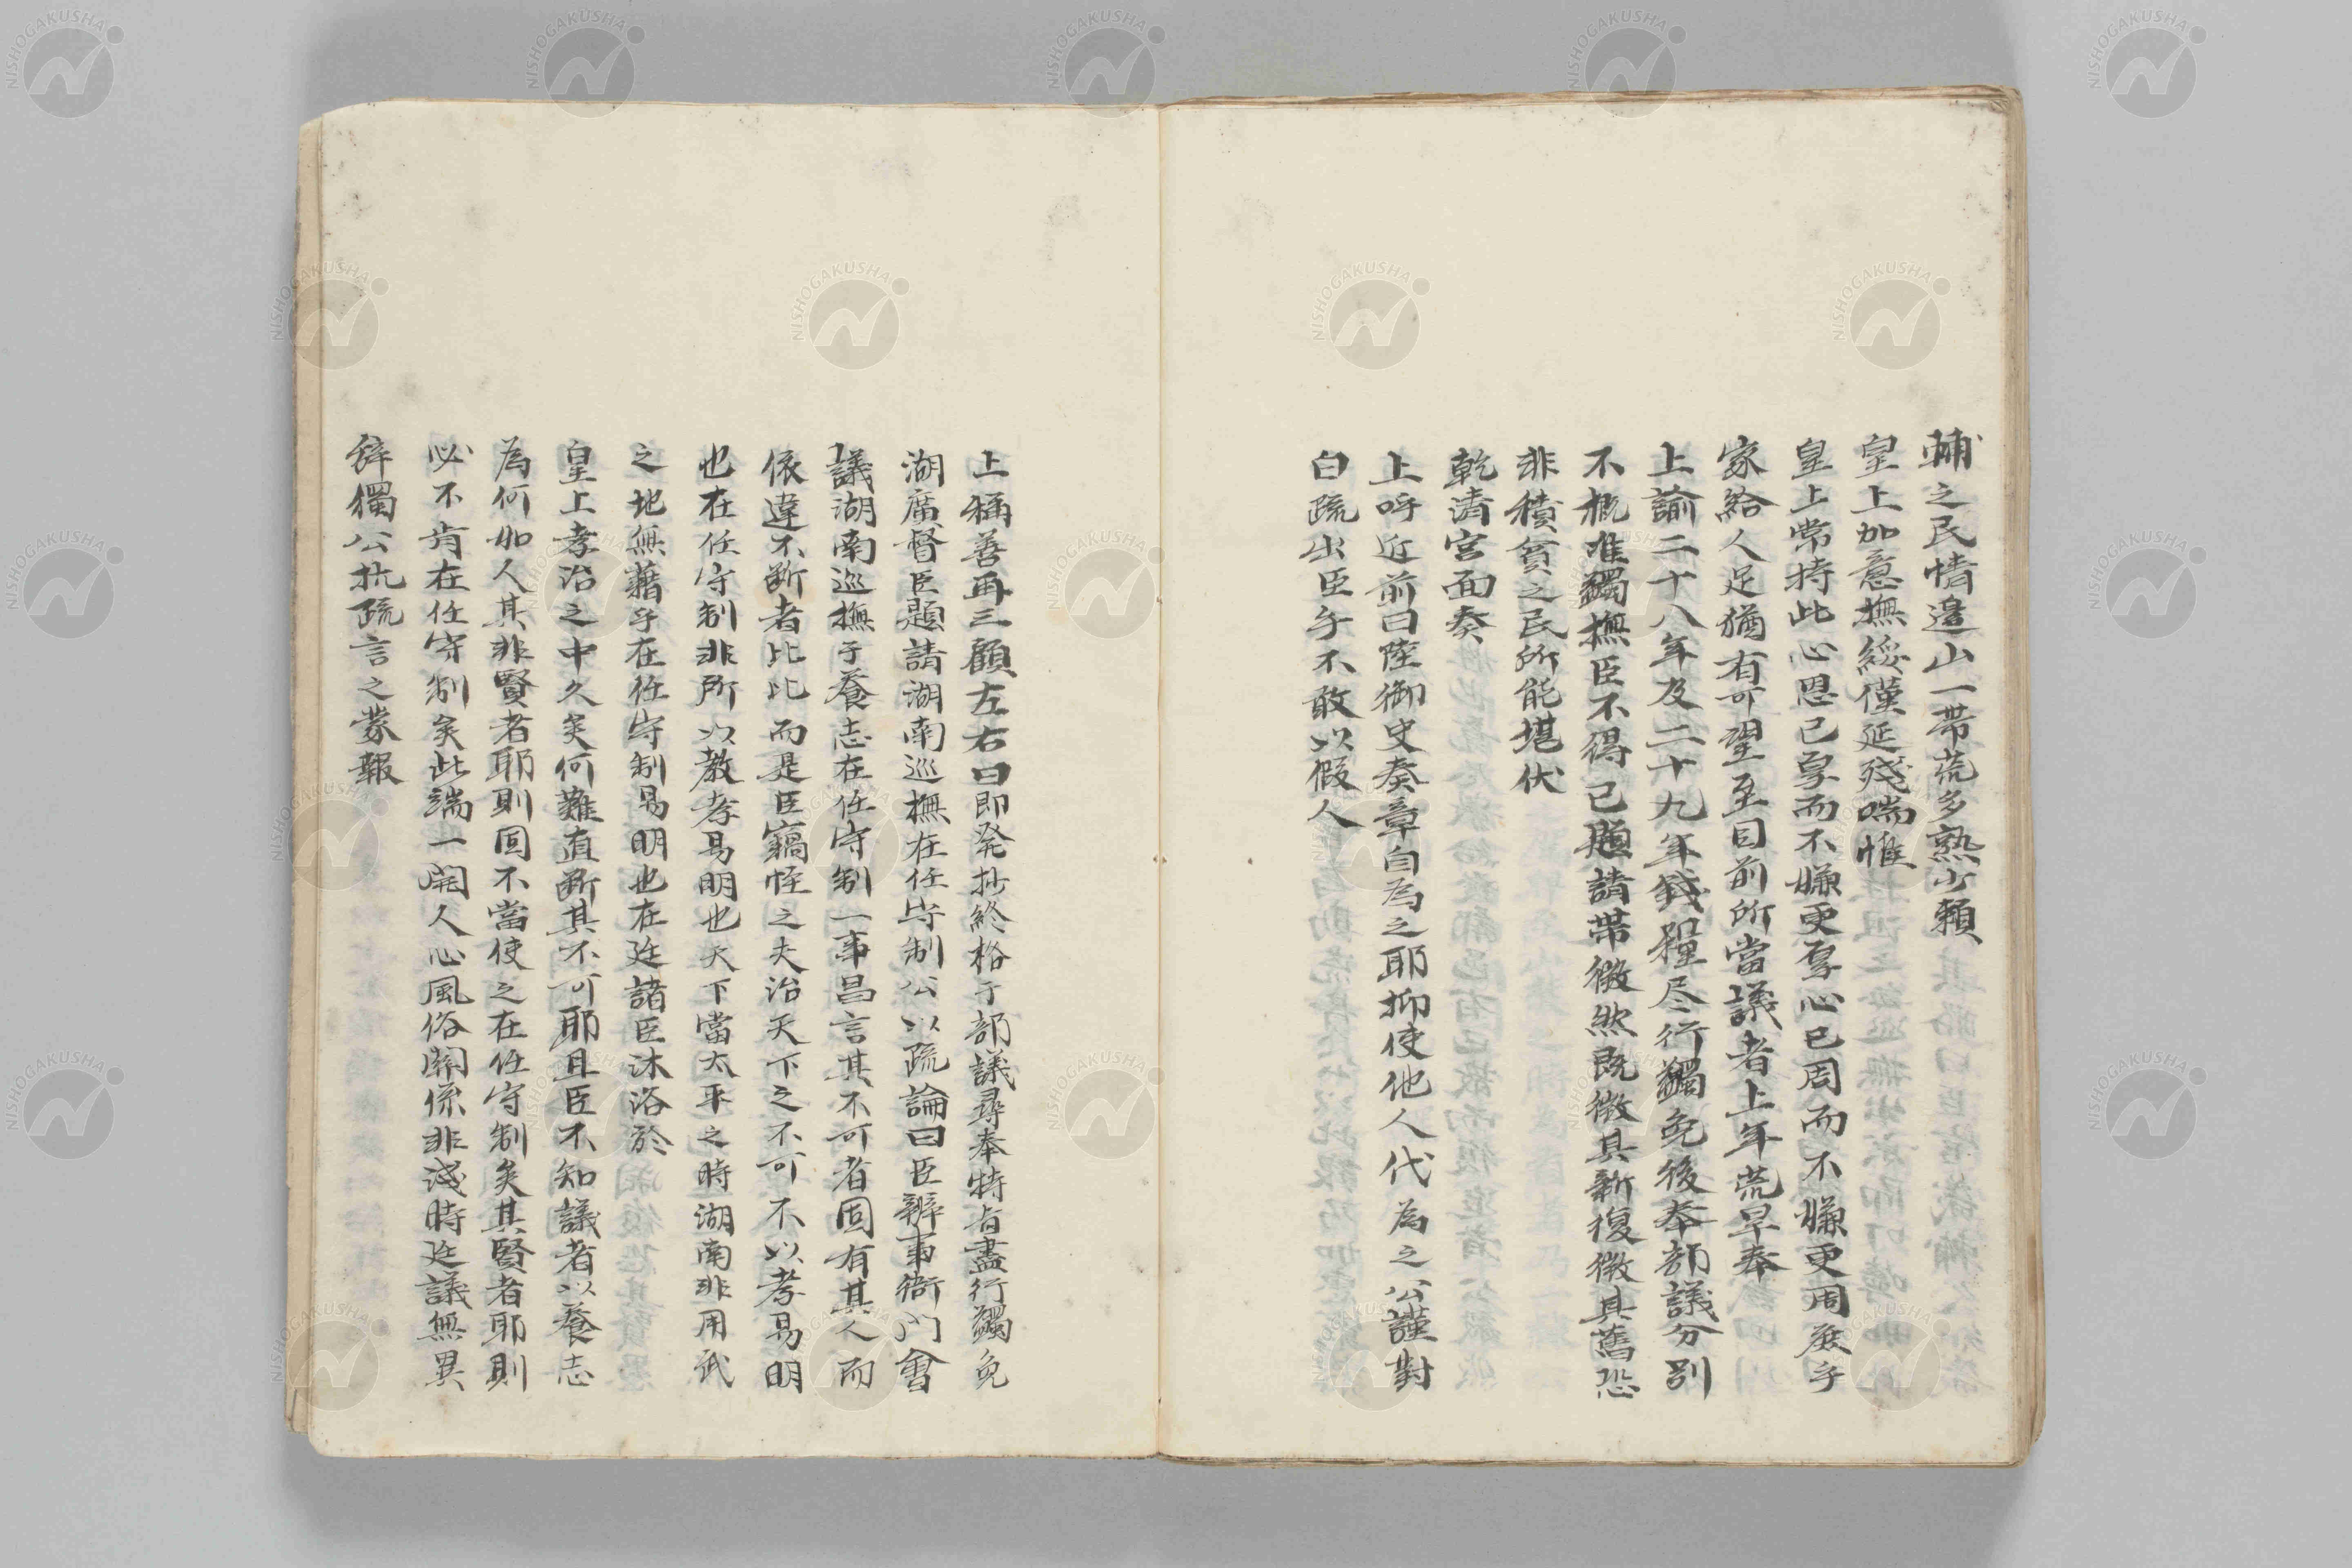 輔之民情邉山一帯荒多熟少頼
皇上加意撫綏僅延殘喘惟
皇上常持此心恩已厚而不嫌更厚心已周而不嫌更周庶乎
家給人足猶有可望至目前所當議者上年荒旱奉
上諭二十八年及二十九年錢粮尽行蠲免後奉部議分别
不概准蠲撫臣不得已題請帯徴然既徴其新復徴其舊恐
非積貧之民所能堪伏
乾清宮面奏
上呼近前曰陸御史奏章自為之耶抑使他人代為之公謹對
曰疏出臣手不敢以假人
上稱善再三顧左右曰即発抄終格于部議尋奉特旨盡行蠲免
湖廣督臣題請湖南巡撫在任守制公以疏論曰臣辦事衙門會
議湖南巡撫于養志在任守制一事昌言其不可者固有其人而
依違不断者比比而是臣竊怪之夫治天下之不可不以孝易明
也在任守制非所以教孝易明也天下當太平之時湖南非用武
之地無藉乎在任守制易明也在廷諸臣沐浴於
皇上孝治之中久矣何難直断其不可耶且臣不知議者以養志
為何如人其非賢者耶則固不當使之在任守制矣其賢者耶則
必不肯在任守制矣此端一開人心風俗関係非淺時廷議無異
辞獨公抗疏言之蒙報